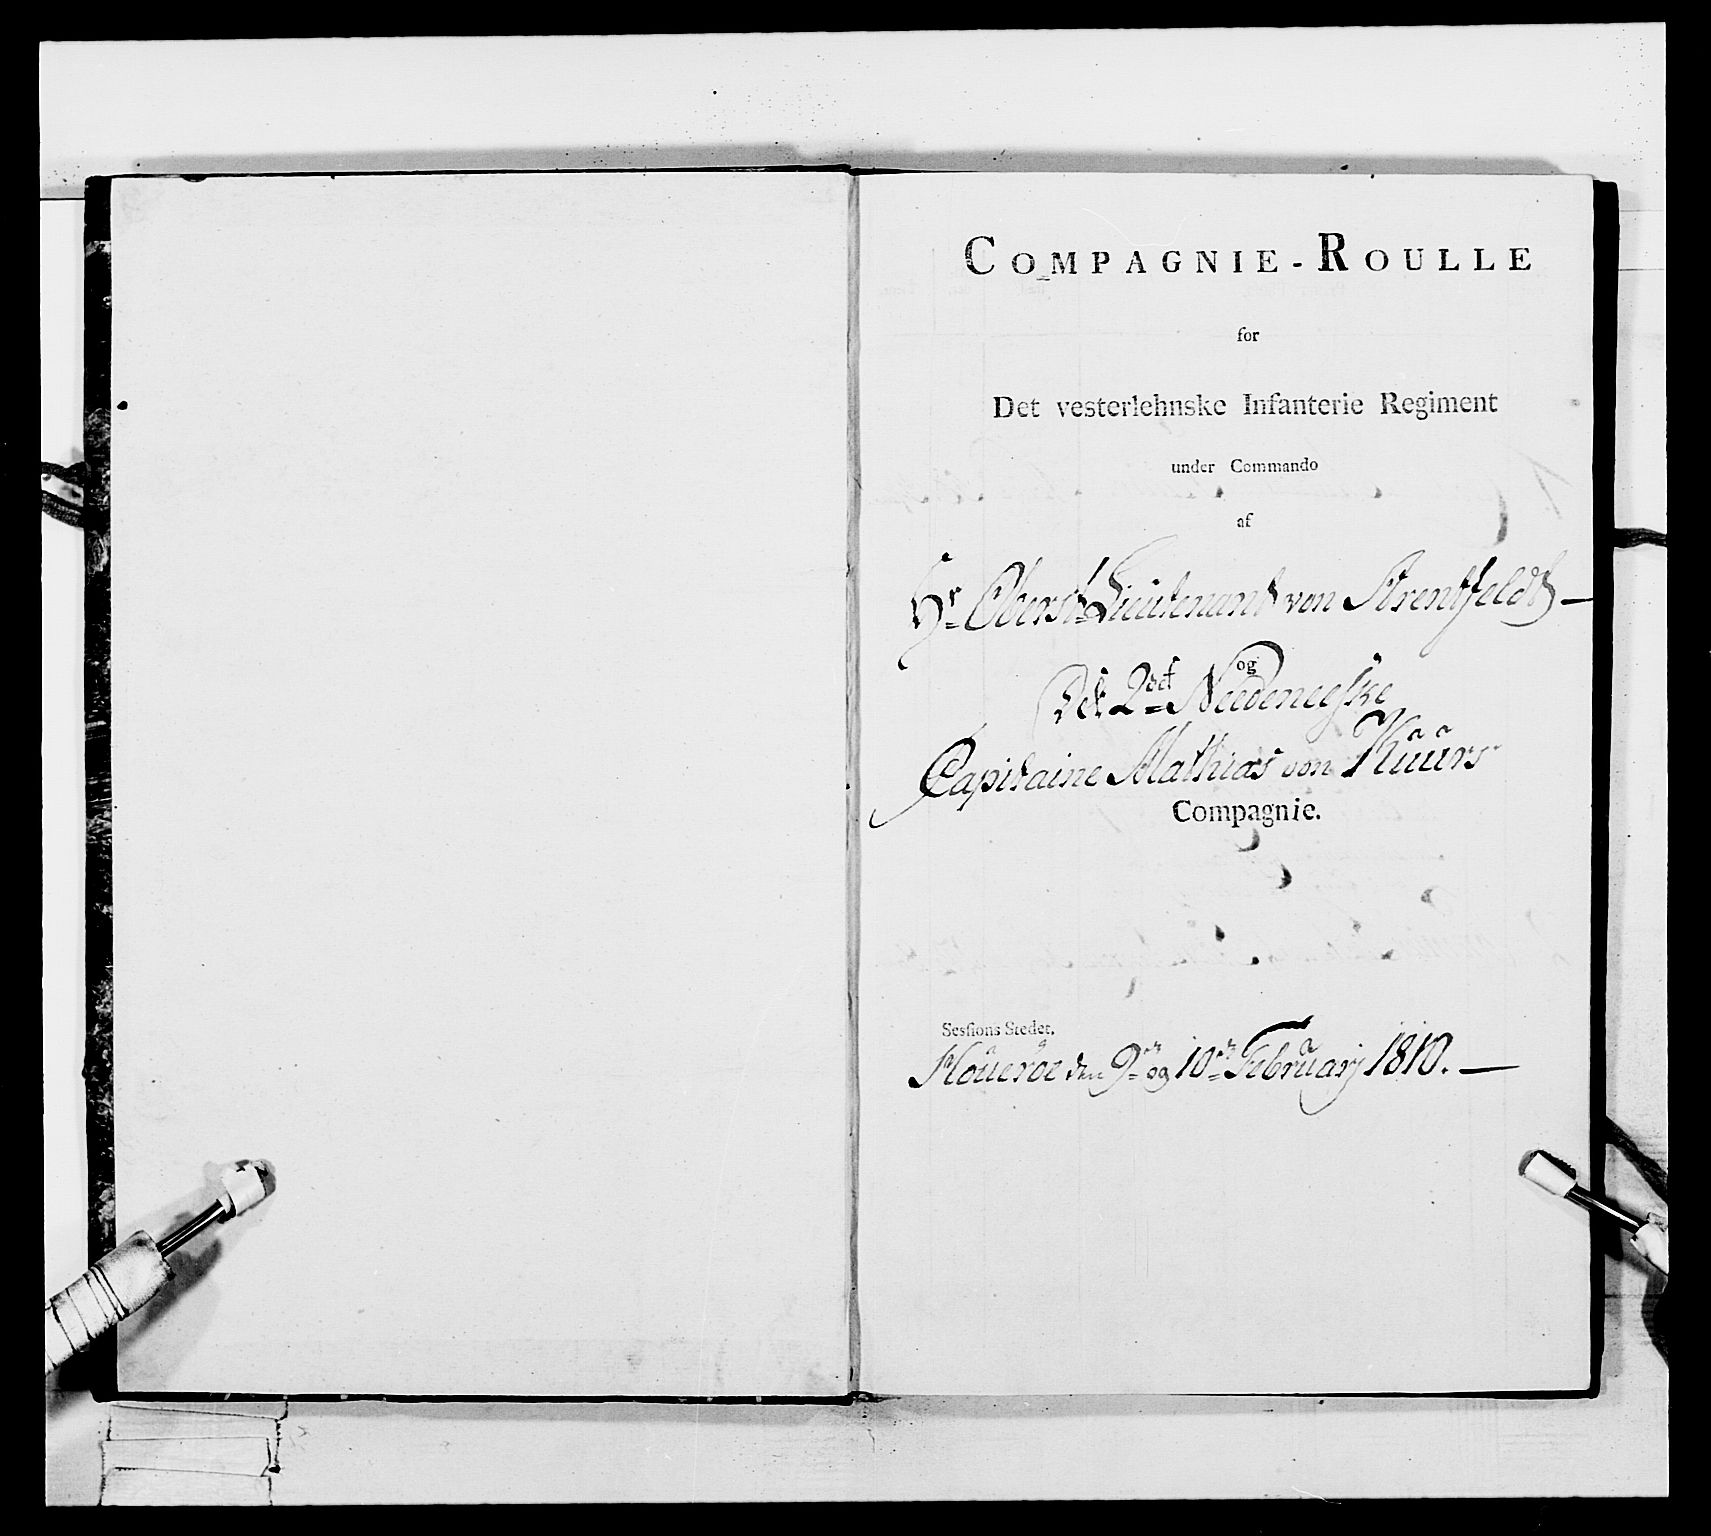 COMPAGNIE-ROULLE
for
Det vesterlehnske Infanterie Regiment
under Commando
af
Hr Oberst Lieutenant von Strentfeldt —
og
Det 2det Nedeneesske
Capitaine Mathias von Kuurs
Compagnie.
Sessions Steder,
den 9de og 10de Februarj 1810. —